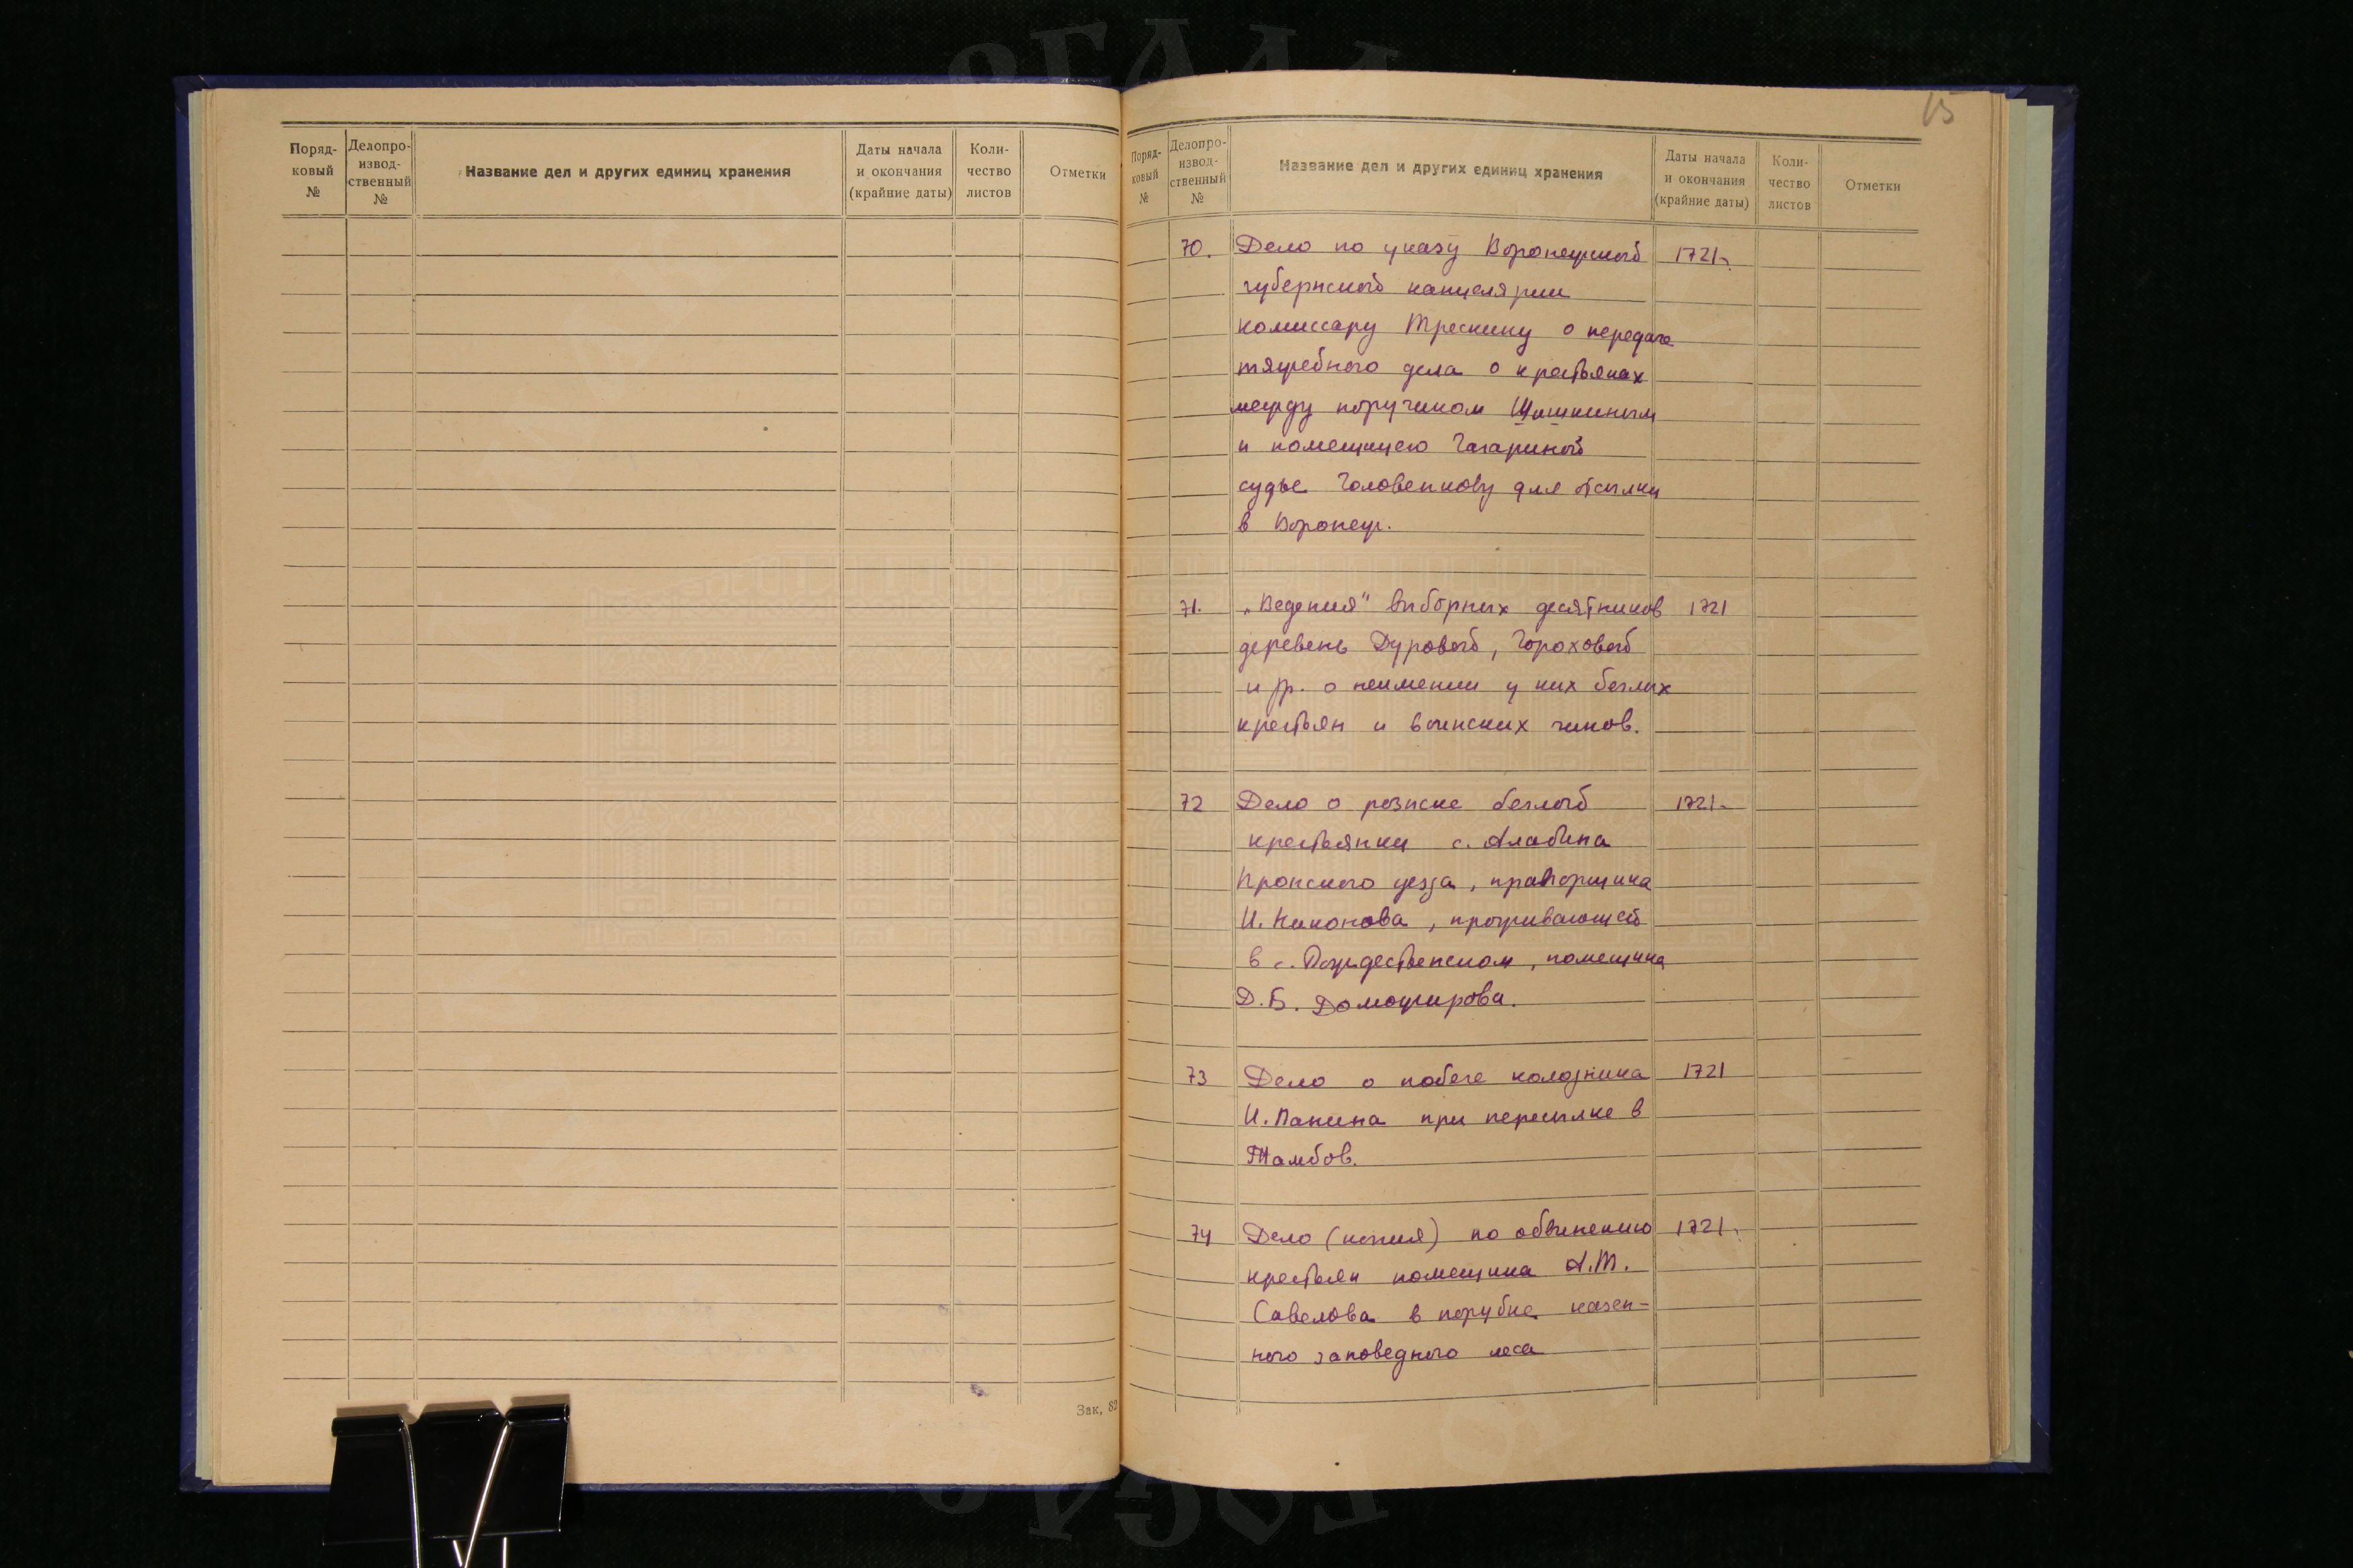 Поряд-
ковый
№
Делопро-
извод-
ственный
№
Название дел и других единиц хранения
Даты начала
и окончания
(крайние даты)
Коли-
чество
листов
Отметки
Зак,
15
Поряд-
ковый
№
Делопро-
извод-
ственный
№
Название дел и других единиц хранения
Даты начала
и окончания
(крайние даты)
Коли-
чество
листов
Отметки
70. Дело по указу Воронежской 1721г.
губернской канцелярии
комиссару Трескину о передаче
тяжебного дела о крестьянах
между поручиком Шишкиным
и помещицею Гагариной
судье Головенкову для отсылки
в Воронеж.
71. „Ведения" выборных десятников 1721
деревень Дуровой, Гороховой
и др. о неимении у них беглых
крестьян и воинских чинов.
72 Дело о розыске беглой 1721г.
крестьянки с. Алабина
Пронского уезда, прапорщика
И. Никонова, проживающей
в с. Рождественском, помещика
Д.Б. Доможирова.
73 Дело о побеге колодника 1721
И. Панина при пересылке в
Тамбов.
74 Дело (копия) по обвинению 1721г.
крестьян помещика А.Т.
Савелова в порубке казен-
ного заповедного леса